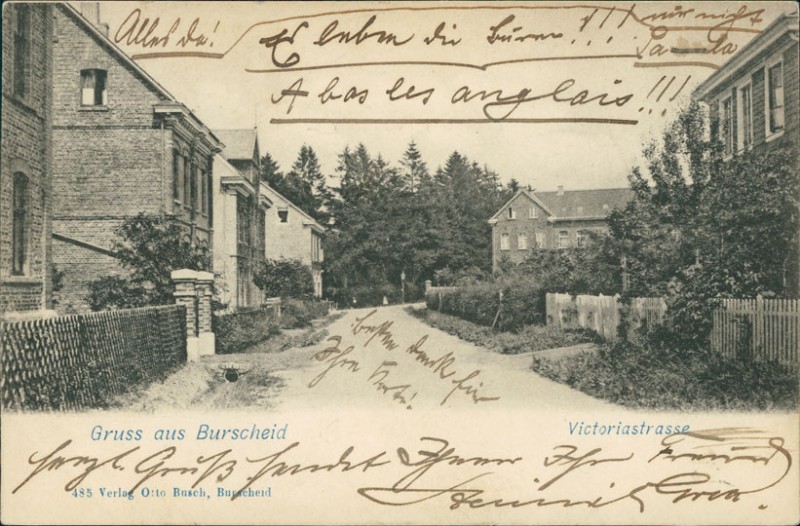 Alles da!
Es leben die Buren!!!
nur nicht
A bas les anglais!!!
besten dank für
Ihre Karte!
Gruss aus Burscheid
Victoriastrasse
herzl. Gruß sendet Ihnen Ihr Freund
Heinrich
485 Verlag Otto Busch, Burscheid